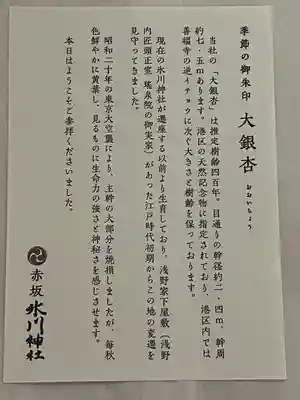 季節の御朱印 大銀杏
おおいちょう
当社の「大銀杏」は推定樹齢四百年。目通りの幹径約二・四m、幹周
約七・五mあります。港区の天然記念物に指定されており、港区内では
善福寺の逆イチョウに次ぐ大きさと樹齢を保っております。
現在の氷川神社が遷座する以前より生育しており、浅野家下屋敷(浅野
内匠頭正室 瑤泉院の御実家)があった江戸時代初期からこの地の変遷を
見守ってきました。
昭和二十年の東京大空襲により、主幹の大部分を焼損しましたが、毎秋
色鮮やかに黄葉し、見るものに生命力の強さと神秘さを感じさせます。
本日はようこそご参拝くださいました。
赤坂 氷川神社